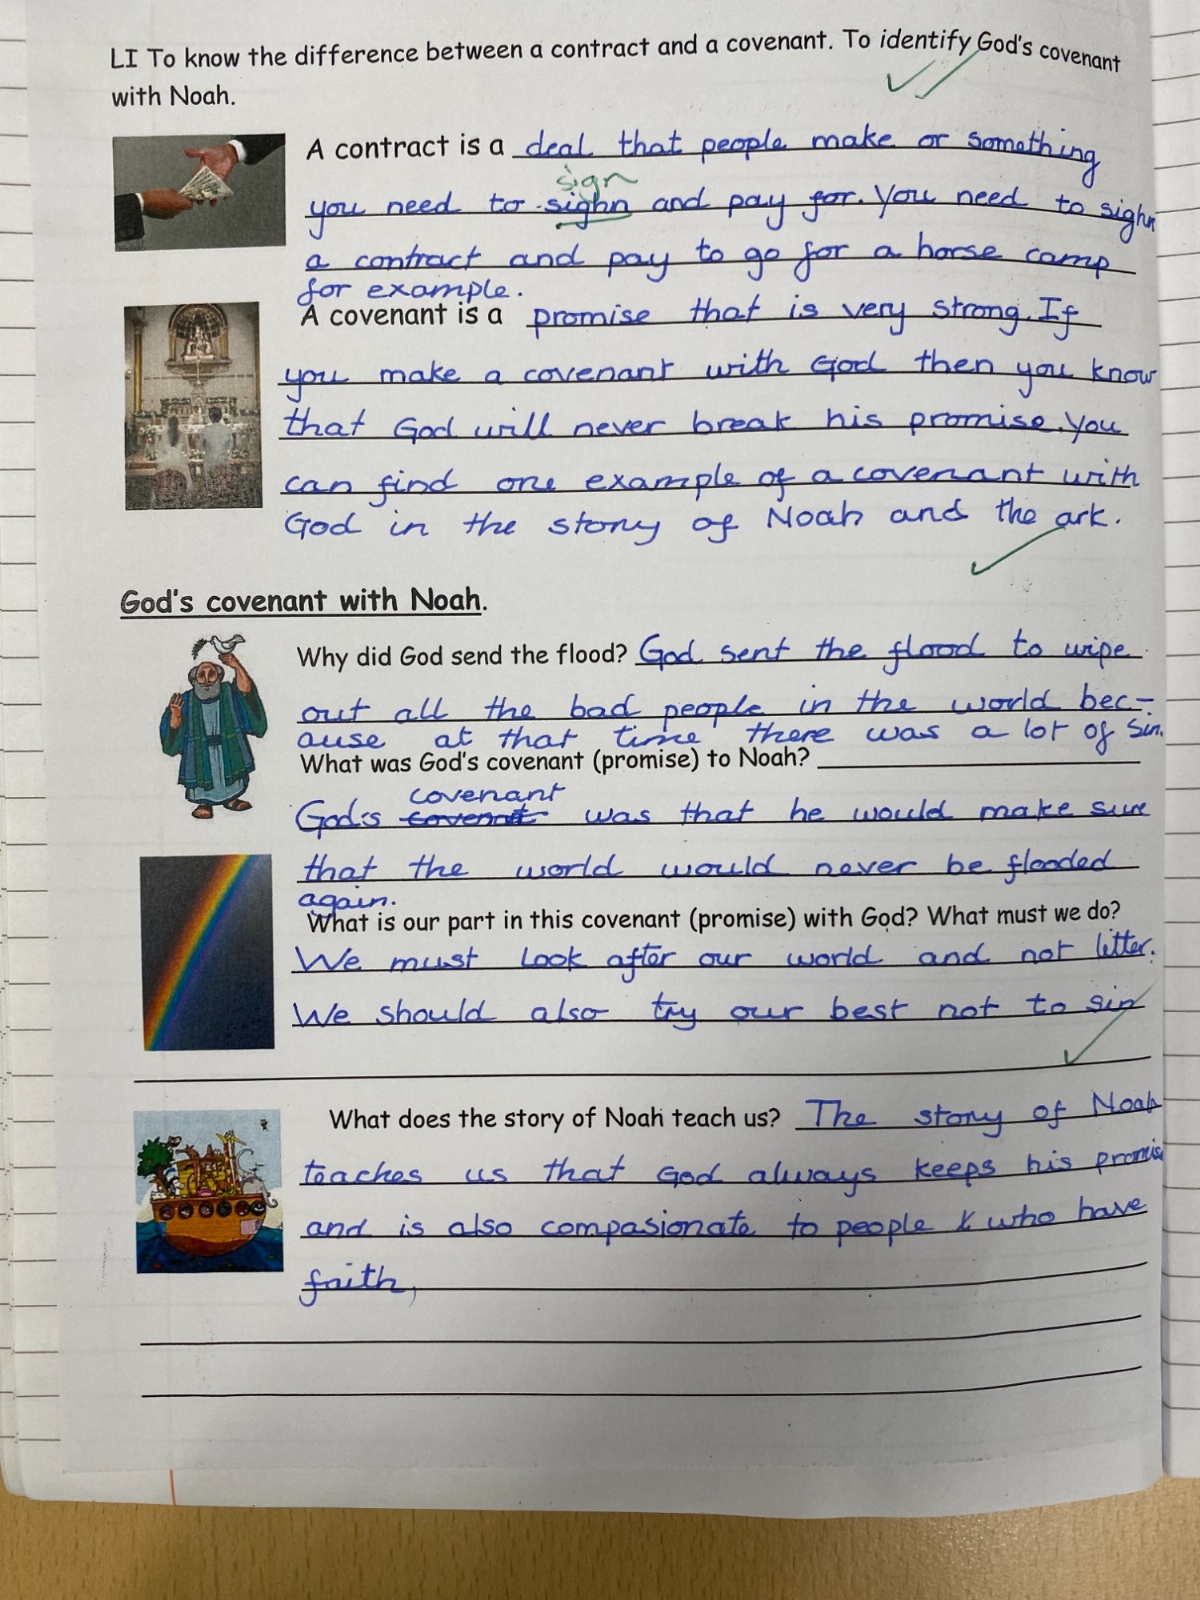 LI To know the difference between a contract and a covenant. To identify God's covenant
with Noah.
A contract is a deal that people make or something
sign
you need to sighn and pay for. You need to sighn
a contract and pay to go for a horse camp
for example.
A covenant is a promise that is very strong. If
you make a covenant with God then you know
that God will never break his promise. You
can find one example of a covenant with
God in the story of Noah and the ark.
God's covenant with Noah.
Why did God send the flood? God sent the flood to wipe
out all the bad people in the world bec-
ause at that time there was a lot of sin.
What was God's covenant (promise) to Noah?
covenant
God's was that he would make sure
that the world would never be flooded
again.
What is our part in this covenant (promise) with God? What must we do?
We must look after our world and not litter.
We should also try our best not to sin
What does the story of Noah teach us? The story of Noah
teaches us that God always keeps his promise
and is also compasionate to people who have
faith,